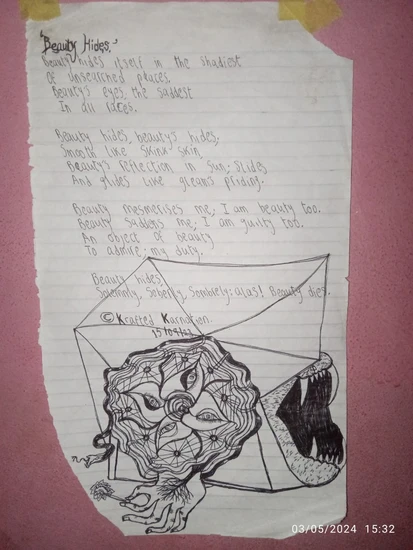 'Beauty Hides.'
Beauty hides itself in the shadiest
Of unsearched places,
Beauty's eyes, the saddest
In all faces.
Beauty hides, beauty's hides,
Smooth like skinx skin
Beauty's reflection in sun; slides
And glides like gleams priding.
Beauty mesmerises me; I am beauty too.
Beauty saddens me; I am guilty too.
An object of beauty
To admire; my duty.
Beauty hides,
Solemnly, Soberly, Sombrely; alas! Beauty dies.
© Krafted Karnation.
03/05/2024 15:32